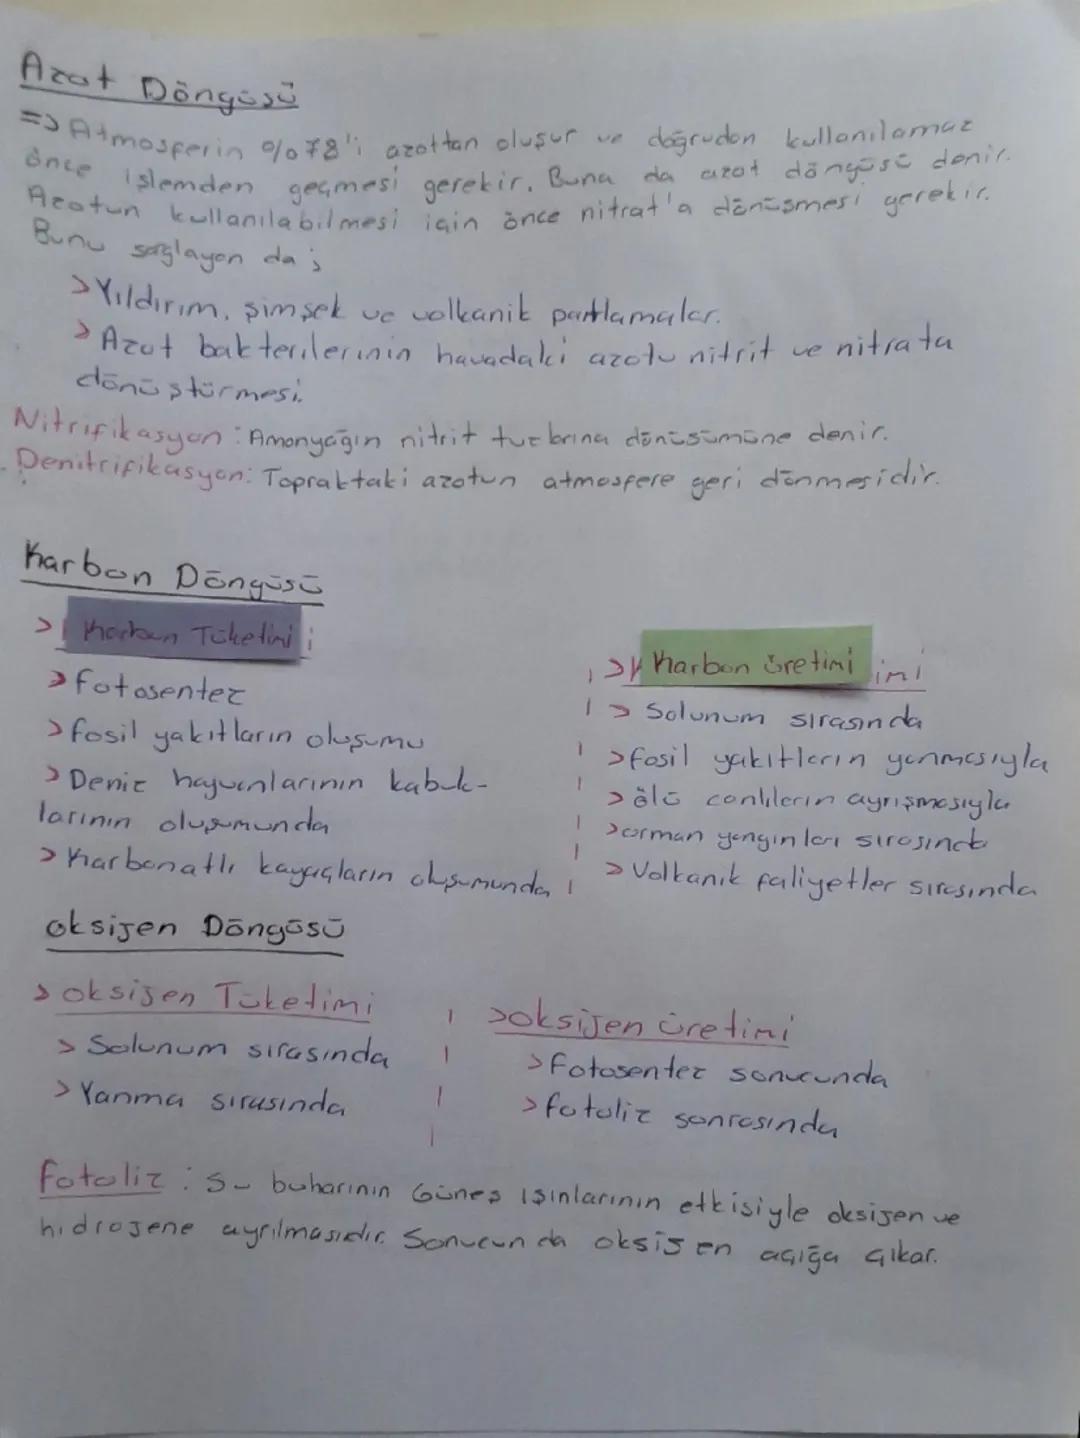 Azot Döngüsü
=> Atmosferin %78'i azottan oluşur ve doğrudan kullanılamaz
önce işlemden geçmesi gerekir. Buna da azot döngüsü denir.
Azotun kullanılabilmesi için önce nitrat'a dönüşmesi gerekir.
Bunu sağlayan da ;
> Yıldırım, şimşek ve volkanik patlamalar.
> Azot bakterilerinin havadaki azotu nitrit ve nitrata
dönüştürmesi.
Nitrifikasyon : Amonyağın nitrit tuzlarına dönüşümüne denir.
Denitrifikasyon: Topraktaki azotun atmosfere geri dönmesidir.
Karbon Döngüsü
> Karbon Tüketimi ;
> fotosentez
> fosil yakıtların oluşumu
> Deniz hayvanlarının kabuk-
larının oluşumunda
> Karbonatlı kayaçların oluşumunda
> Karbon üretimi imi
> Solunum sırasında
> fosil yakıtların yanmasıyla
> ölü canlıların ayrışmasıyla
> orman yangınları sırasında
> Volkanik faliyetler sırasında
oksijen Döngüsü
> oksijen Tüketimi
> Solunum sırasında
> Yanma sırasında
> oksijen üretimi
> fotosentez sonucunda
> fotoliz sonrasında
fotoliz : Su buharının Güneş ışınlarının etkisiyle oksijen ve
hidrojene ayrılmasıdır. Sonucunda oksijen açığa çıkar.